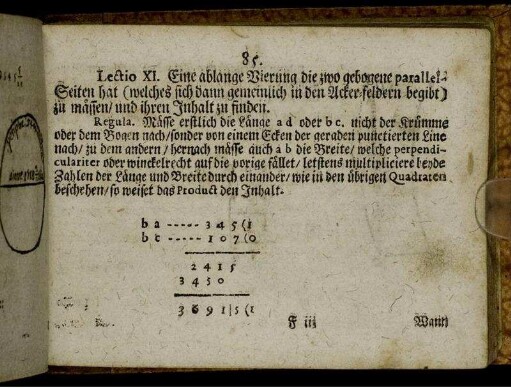 85.
Lectio XI. Eine ablange Vierung die zwo gebogene parallel-
Seiten hat (welches sich dann gemeinlich in den Acker-feldern begibt)
zu mässen/ und ihren Inhalt zu finden.
Regula. Mässe erstlich die Länge a d oder b c. nicht der Krümme
oder dem Bogen nach/ sonder von einem Ecken der geraden punctierten Line
nach/ zu dem andern/ hernach mässe auch a b die Breite/ welche perpendi-
culariter oder winckelrecht auf die vorige fället/ letstens multipliciere beyde
Zahlen der Länge und Breite durch einander/ wie in den übrigen Quadraten
beschehen/ so weiset das Product den Inhalt.
b a ----- 3 4 5 (1
b c ----- 1 0 7 (0
2 4 1 5
3 4 5 0
3 6 9 1|5 (1
F iij
Wann